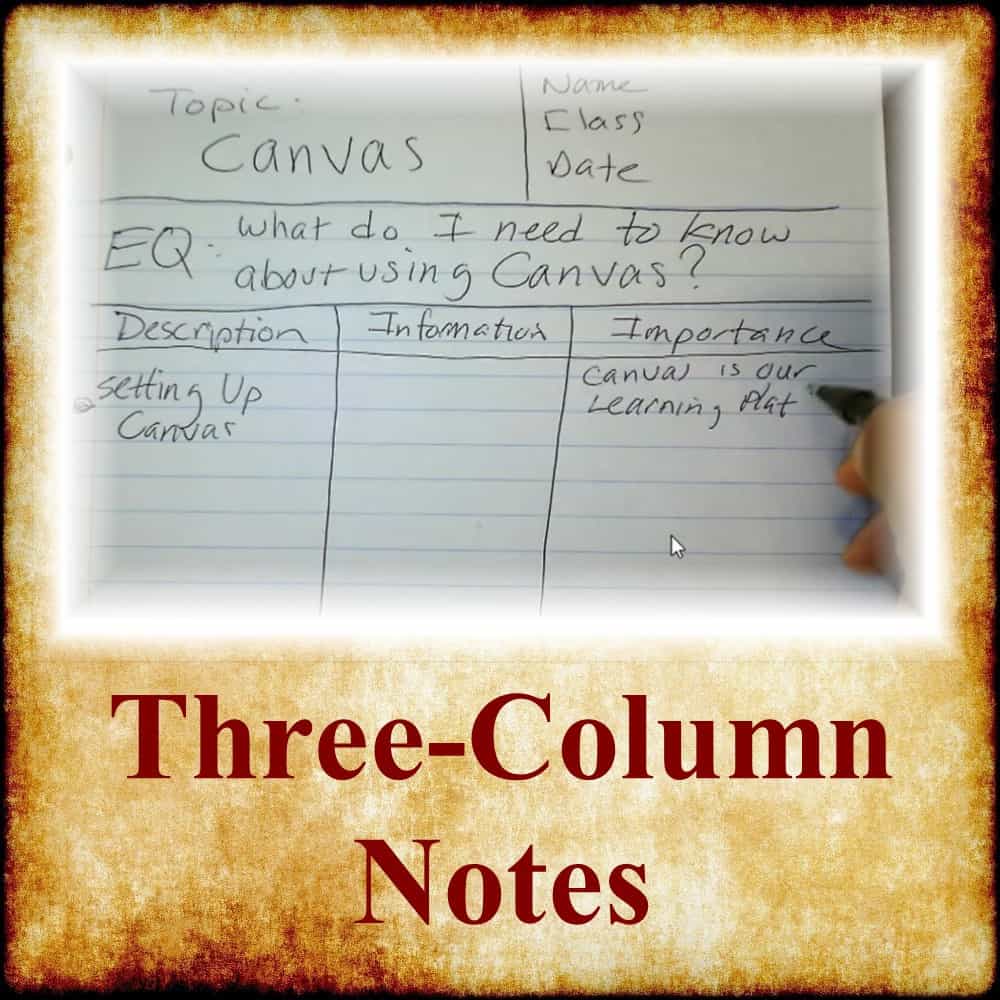 Topic:
Canvas
Name
Class
Date
EQ: What do I need to know
about using Canvas?
Description
Information
Importance
setting Up
Canvas
Canvas is our
Learning Plat
Three-Column
Notes